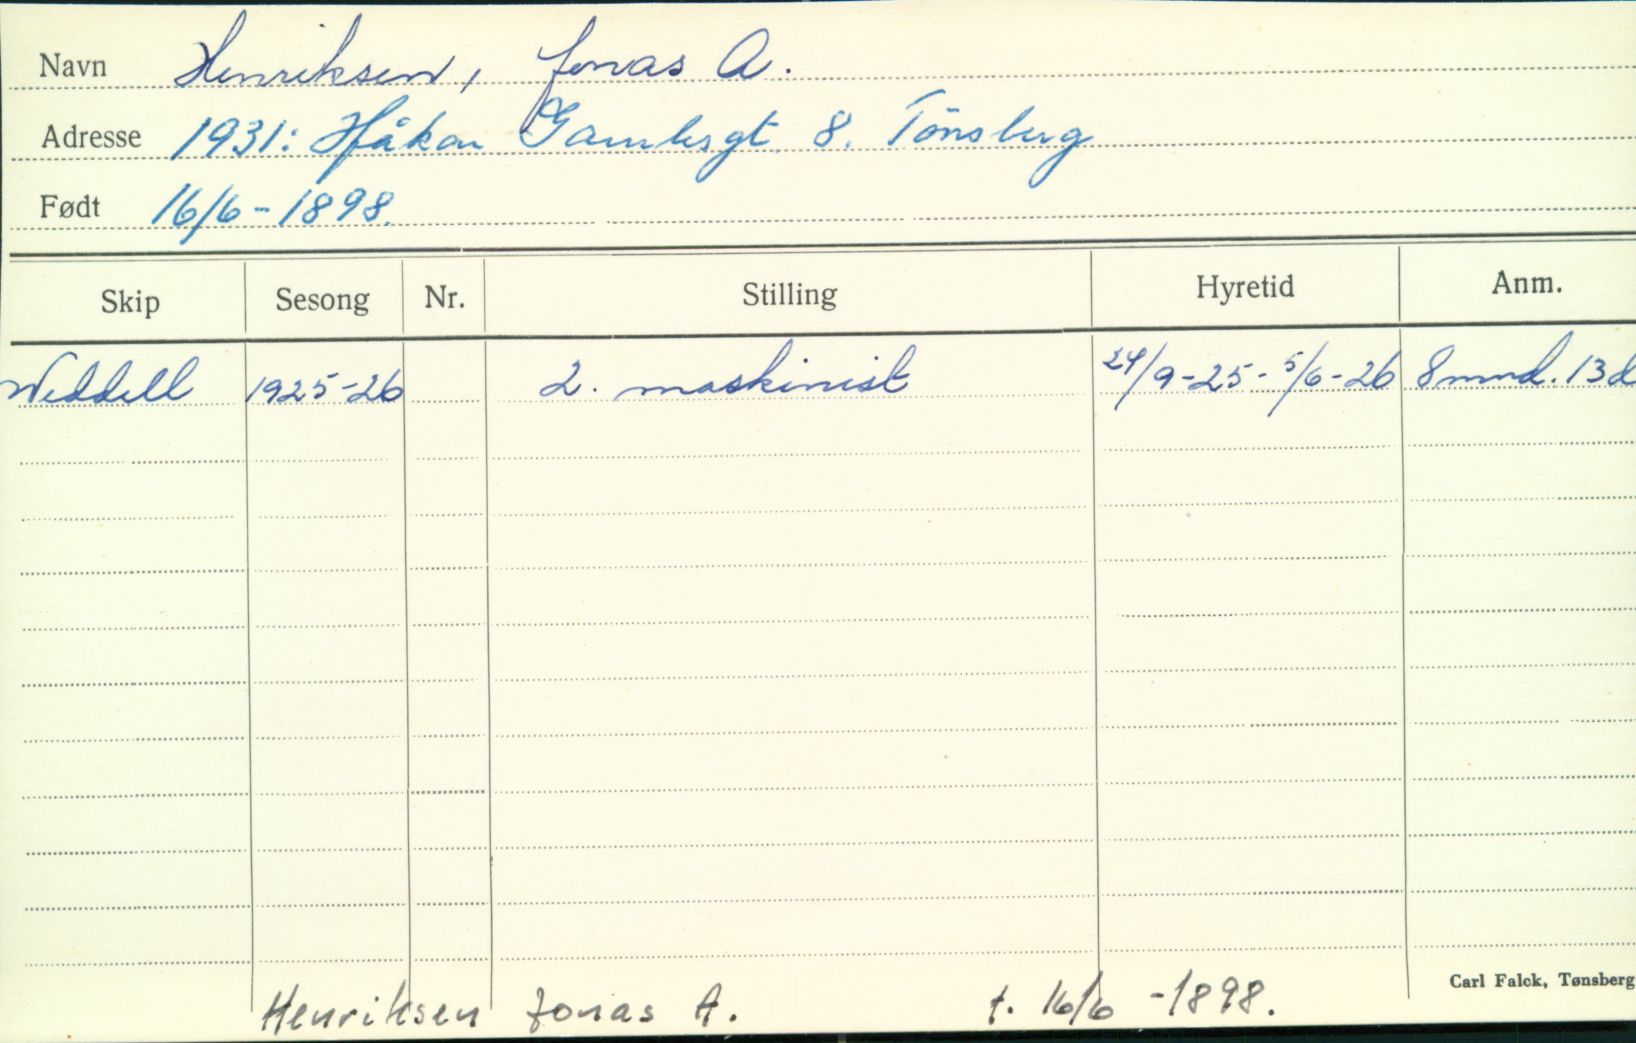 Navn Henriksen, Jonas A.
Adresse 1931: Håkon Gamlesgt. 8. Tönsberg
Født 16/6-1898.
Skip Sesong Nr. Stilling Hyretid Anm.
Weddell 1925-26 2. maskinist 24/9-25-5/6-26 8 mnd. 13 d
Carl Falck, Tønsberg
Henriksen Jonas A. f. 16/6-1898.